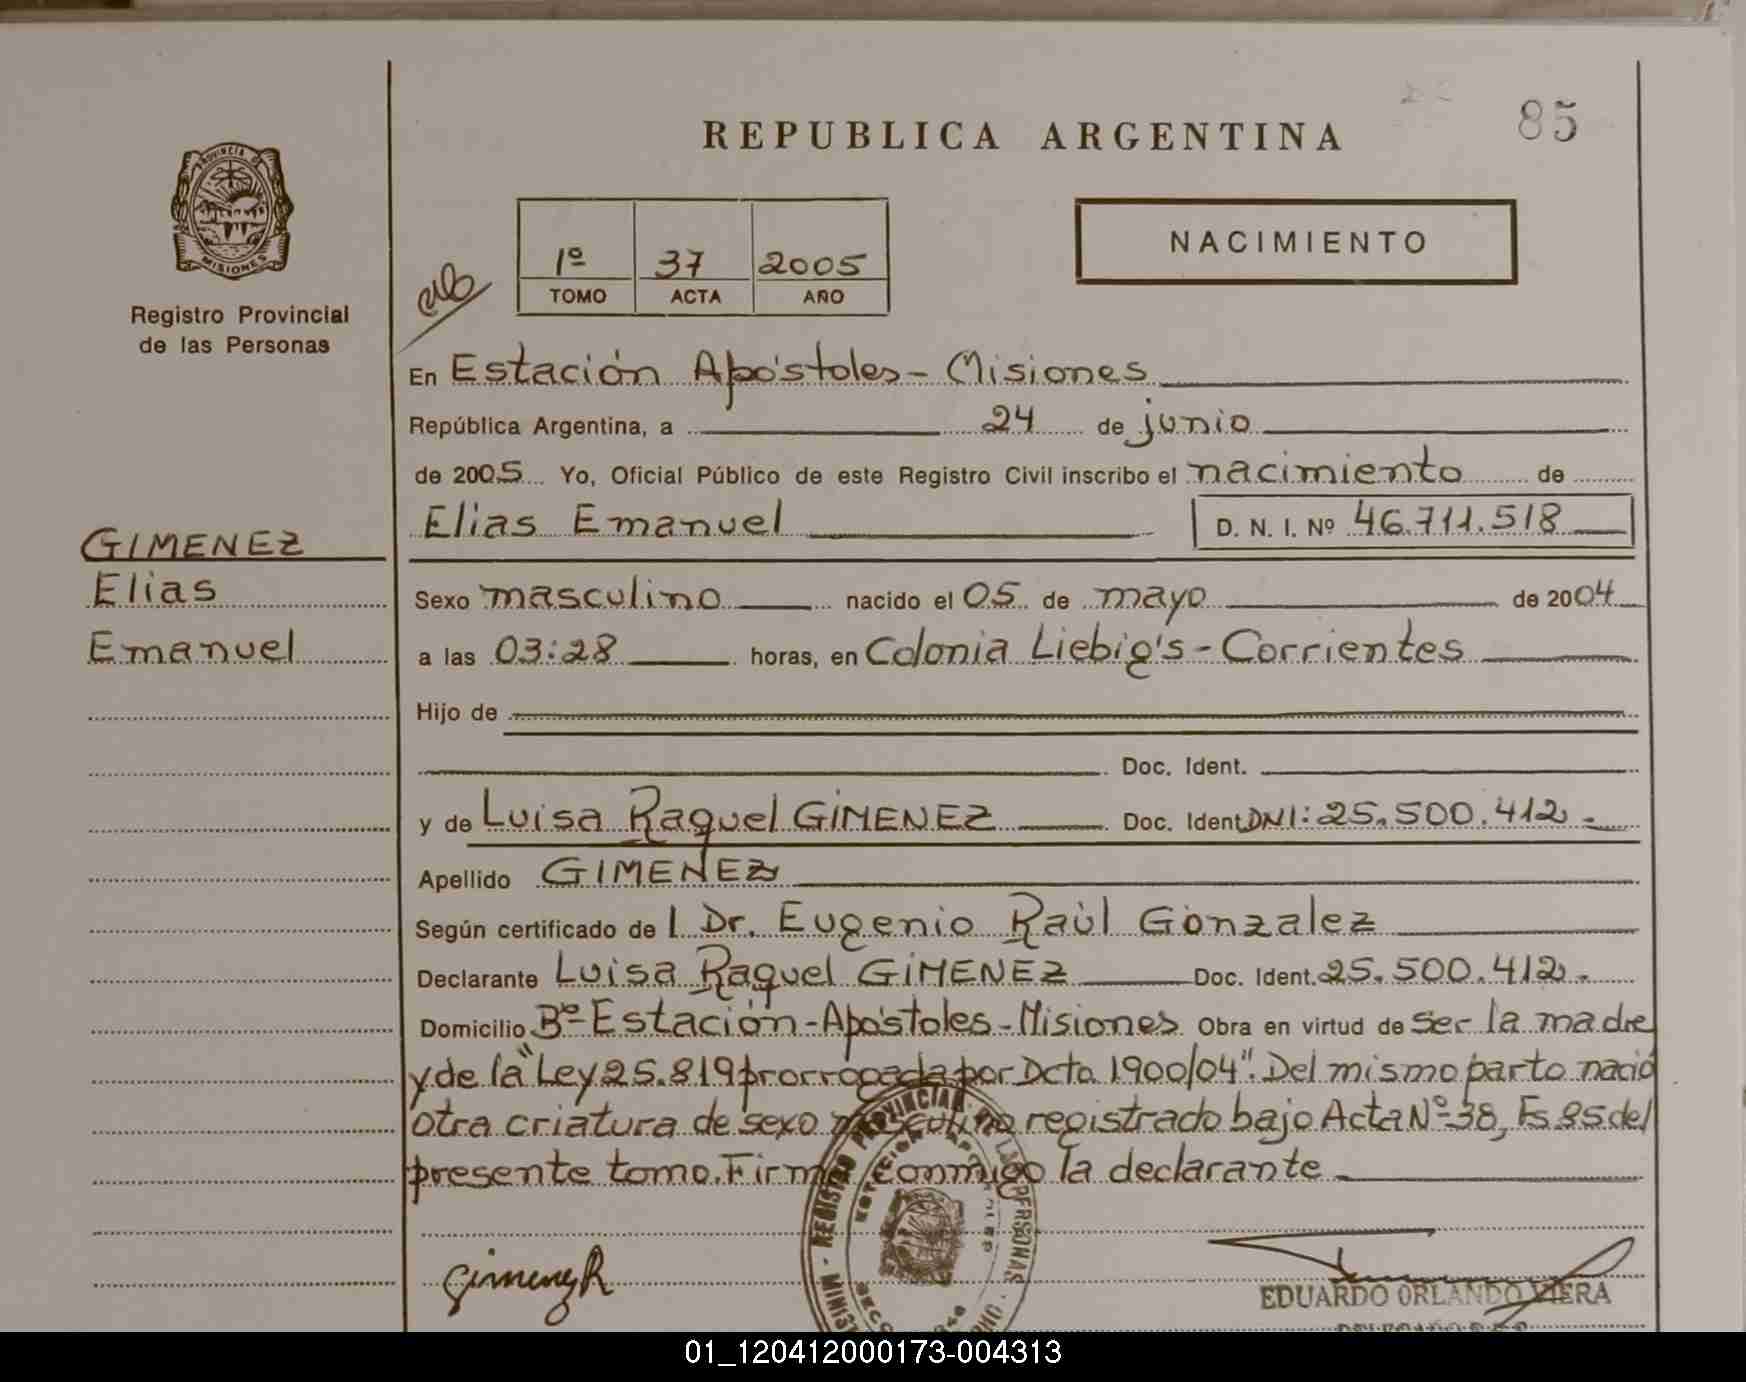 85
REPUBLICA ARGENTINA
PROVINCIA DE
MISIONES
Registro Provincial
de las Personas
1º 37 2005
TOMO ACTA AÑO
NACIMIENTO
En Estación Apóstoles - Misiones
República Argentina, a 24 de junio
de 2005 Yo, Oficial Público de este Registro Civil inscribo el nacimiento de
Elias Emanuel D. N. I. Nº 46.711.518
GIMENEZ
Elias
Emanuel
Sexo masculino nacido el 05 de mayo de 2004
a las 03:28 horas, en Colonia Liebig's - Corrientes
Hijo de
Doc. Ident.
y de Luisa Raquel GIMENEZ Doc. Ident DNI: 25.500.412.-
Apellido GIMENEZ
Según certificado de l Dr. Eugenio Raúl Gonzalez
Declarante Luisa Raquel GIMENEZ Doc. Ident. 25.500.412.-
Domicilio Bº Estación - Apóstoles - Misiones Obra en virtud de ser la madre
y de la "Ley 25.819 prorrogada por Dcto 1900/04". Del mismo parto nació
otra criatura de sexo masculino registrado bajo Acta Nº 38, Fs 85 del
presente tomo. Firma conmigo la declarante
Gimenez R
REGISTRO PROVINCIAL DE LAS PERSONAS
EDUARDO ORLANDO VIERA
01_120412000173-004313